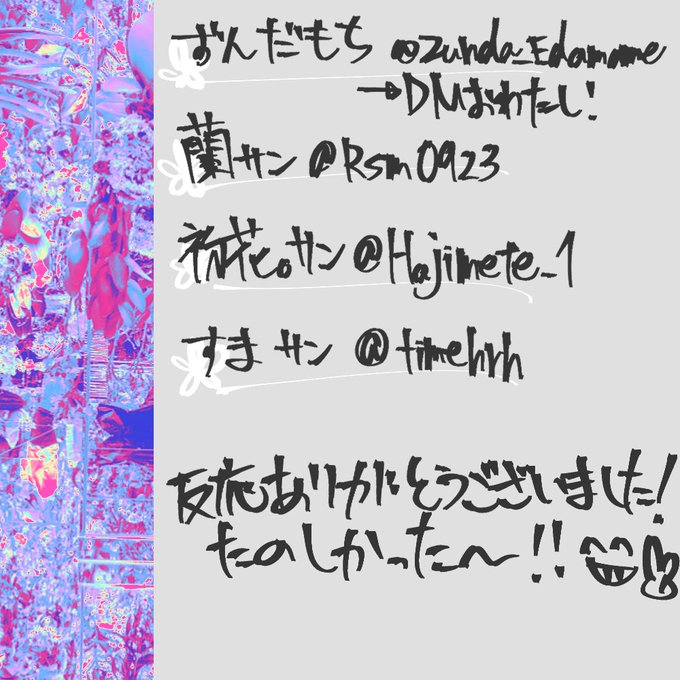 ずんだもち @Zunda_Edamame
→DMおわたし!
蘭サン @Rsm0923
初花。サン @Hajimete_1
すまサン @timehrh
反応ありがとうございました!
たのしかった〜!!